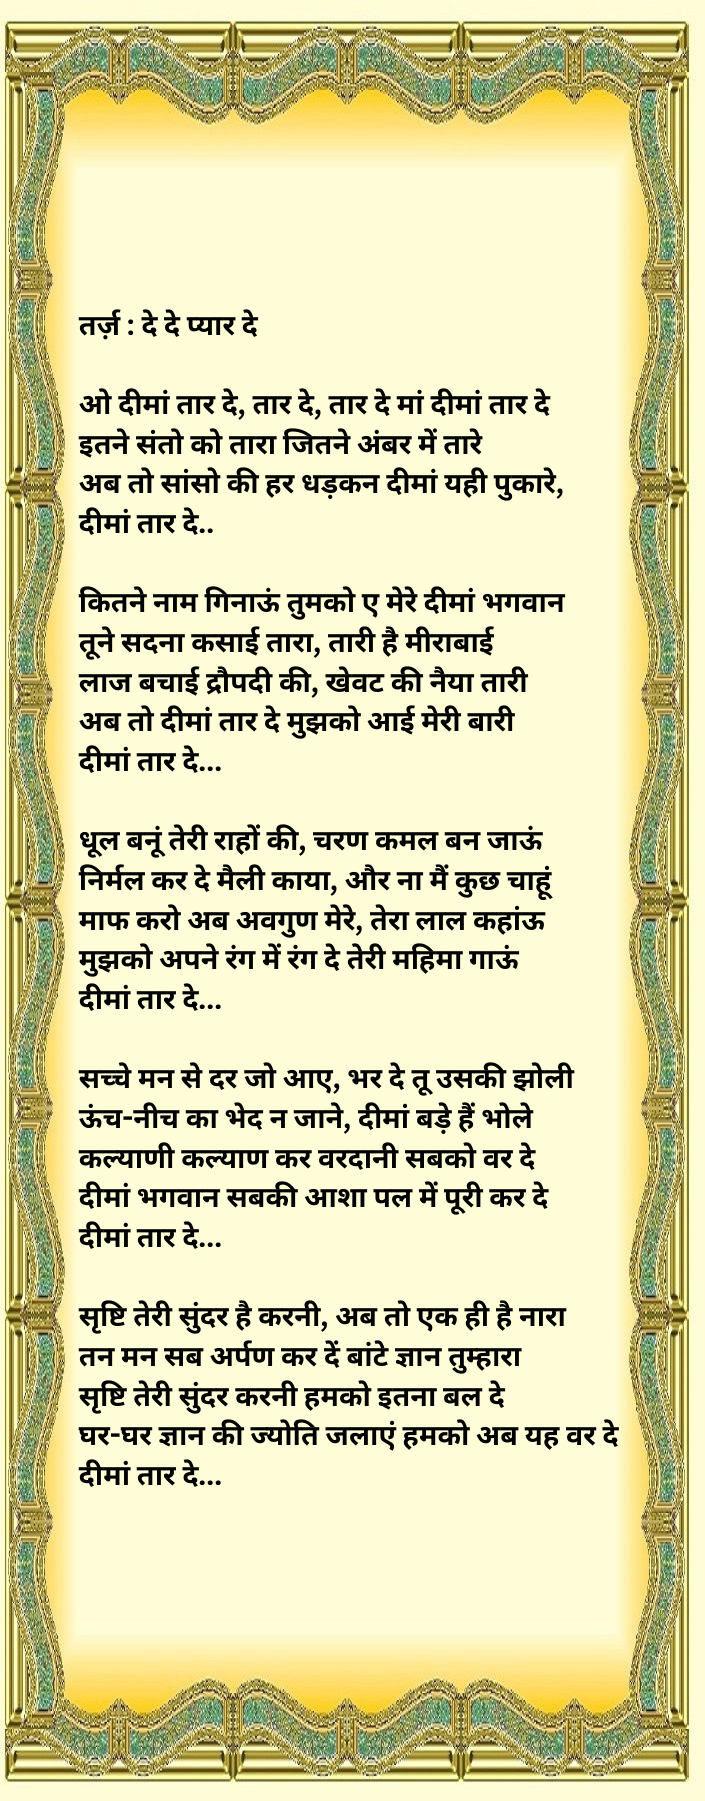 तर्ज़ : दे दे प्यार दे
ओ दीमां तार दे, तार दे, तार दे मां दीमां तार दे
इतने संतो को तारा जितने अंबर में तारे
अब तो सांसो की हर धड़कन दीमां यही पुकारे,
दीमां तार दे..
कितने नाम गिनाऊं तुमको ए मेरे दीमां भगवान
तूने सदना कसाई तारा, तारी है मीराबाई
लाज बचाई द्रौपदी की, खेवट की नैया तारी
अब तो दीमां तार दे मुझको आई मेरी बारी
दीमां तार दे...
धूल बनूं तेरी राहों की, चरण कमल बन जाऊं
निर्मल कर दे मैली काया, और ना मैं कुछ चाहूं
माफ करो अब अवगुण मेरे, तेरा लाल कहांऊ
मुझको अपने रंग में रंग दे तेरी महिमा गाऊं
दीमां तार दे...
सच्चे मन से दर जो आए, भर दे तू उसकी झोली
ऊंच-नीच का भेद न जाने, दीमां बड़े हैं भोले
कल्याणी कल्याण कर वरदानी सबको वर दे
दीमां भगवान सबकी आशा पल में पूरी कर दे
दीमां तार दे...
सृष्टि तेरी सुंदर है करनी, अब तो एक ही है नारा
तन मन सब अर्पण कर दें बांटे ज्ञान तुम्हारा
सृष्टि तेरी सुंदर करनी हमको इतना बल दे
घर-घर ज्ञान की ज्योति जलाएं हमको अब यह वर दे
दीमां तार दे...